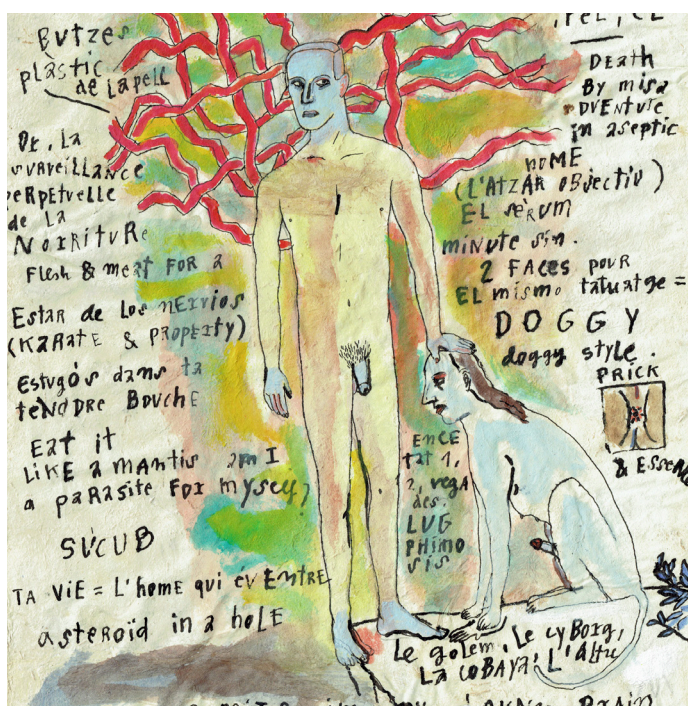 Butzes
plàstic
de la pell
De, La
survaveillance
perpetvelle
de La
Noirriture
Flesh & meat FOR a
Estar de Los nervios
(Karate & property)
Estugós dans ta
tendre Bouche
Eat it
Like a mantis am I
a parasite For myself,
SÚCUB
TA VIE = L'home qui éventre
asteroïd in a hole
Death
By misa
DVENTURE
in aseptic
nome
(L'atzar objectiu)
EL sèrum
minute sin.
2 Faces pour
EL mismo tatuatge =
DOGGY
doggy style.
PRICK
ENCE
tat 1,
2, vega
des.
LUG
PHIMO
sis
Le golem, Le cyborg,
La cobaya, L'altu